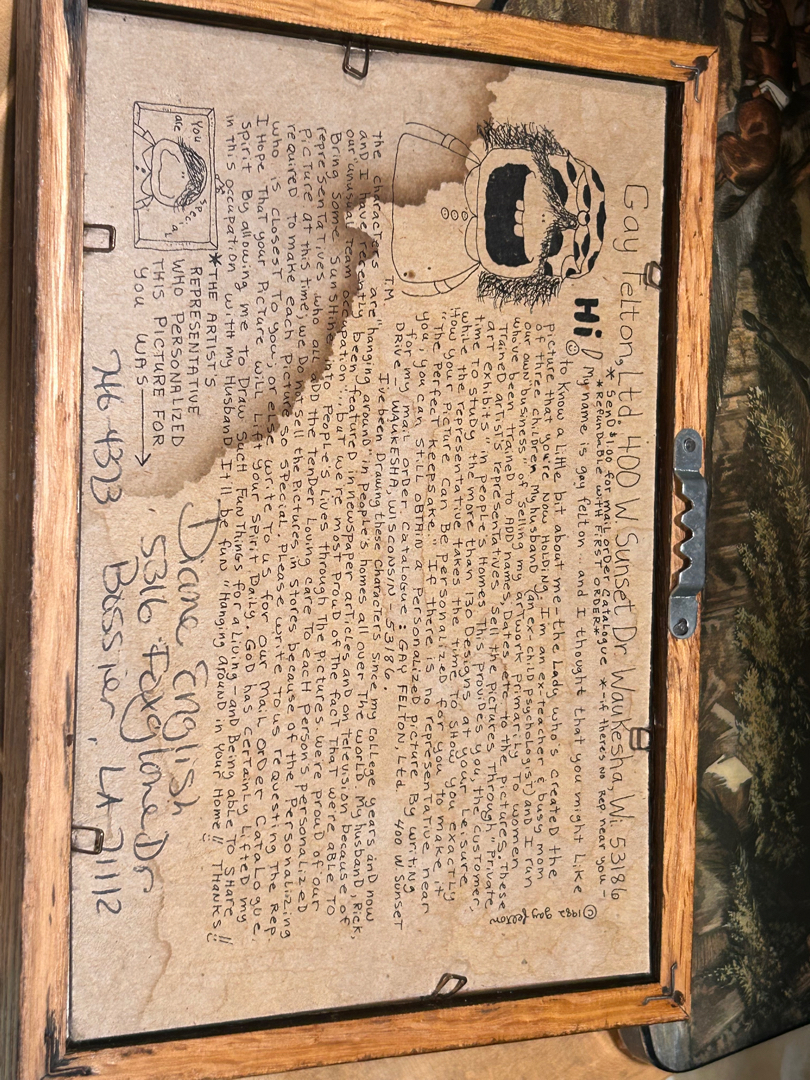 Gay Felton, Ltd. 400 W. Sunset Dr Waukesha, Wi. 53186
* Send $1.00 for mail order catalogue * -if there's no rep near you-
* Refundable with first order *
Hi! My name is gay felton.. and I thought that you might like
to know a little bit about me - the Lady who's created the
picture that you're now holding. I'm an ex-teacher & busy mom
of three children. My husband (an ex-child psychologist) and I run
our own business of selling my artwork primarily to women
whove been trained to ADD names, Dates etc. to the pictures. These
Trained artist's representatives sell the pictures Through Private
"art exhibits" in people's Homes. This provides you, the customer,
time to study the more than 130 Designs at your Leisure
while the representative takes the time to show you exactly
How your picture can be personalized for you to make it
"the perfect keepsake." If there is no representative near
you, you can still obtain a personalized picture By writing
for my mail order catalogue: GAY FELTON, Ltd 400 W Sunset
DRIVE, WAUKESHA, WISCONSIN - 53186.
© 1982 gay felton
T.M.
I've been Drawing these characters since my college years and now
the characters are "hanging around" in people's homes all over the world. My husband, Rick,
and I have recently been featured in newspaper articles and on television because of
our "unusual team occupation"... but we're most proud of the fact that we're able to
Bring some sunshine into people's lives through the pictures. We're proud of our
representatives who all add the tender loving care to each person's personalized
picture. At this time, we Do not sell the pictures in stores because of the personalizing
required to make each picture so special. Please write to us requesting the rep
who is closest to you; or else write to us for our mail order catalogue.
I Hope That your Picture will Lift your spirit Daily. GOD has certainly Lifted my
spirit By allowing me to Draw such fun Things for a Living - and Being able to share
in this occupation with my Husband. It'll be fun "Hanging around" in your Home!! Thanks!!
You are special
*THE ARTIST'S
REPRESENTATIVE
WHO PERSONALIZED
THIS PICTURE FOR
YOU WAS
Diane English
5316 Foxglove Dr
Bossier, LA 71112
746-4323